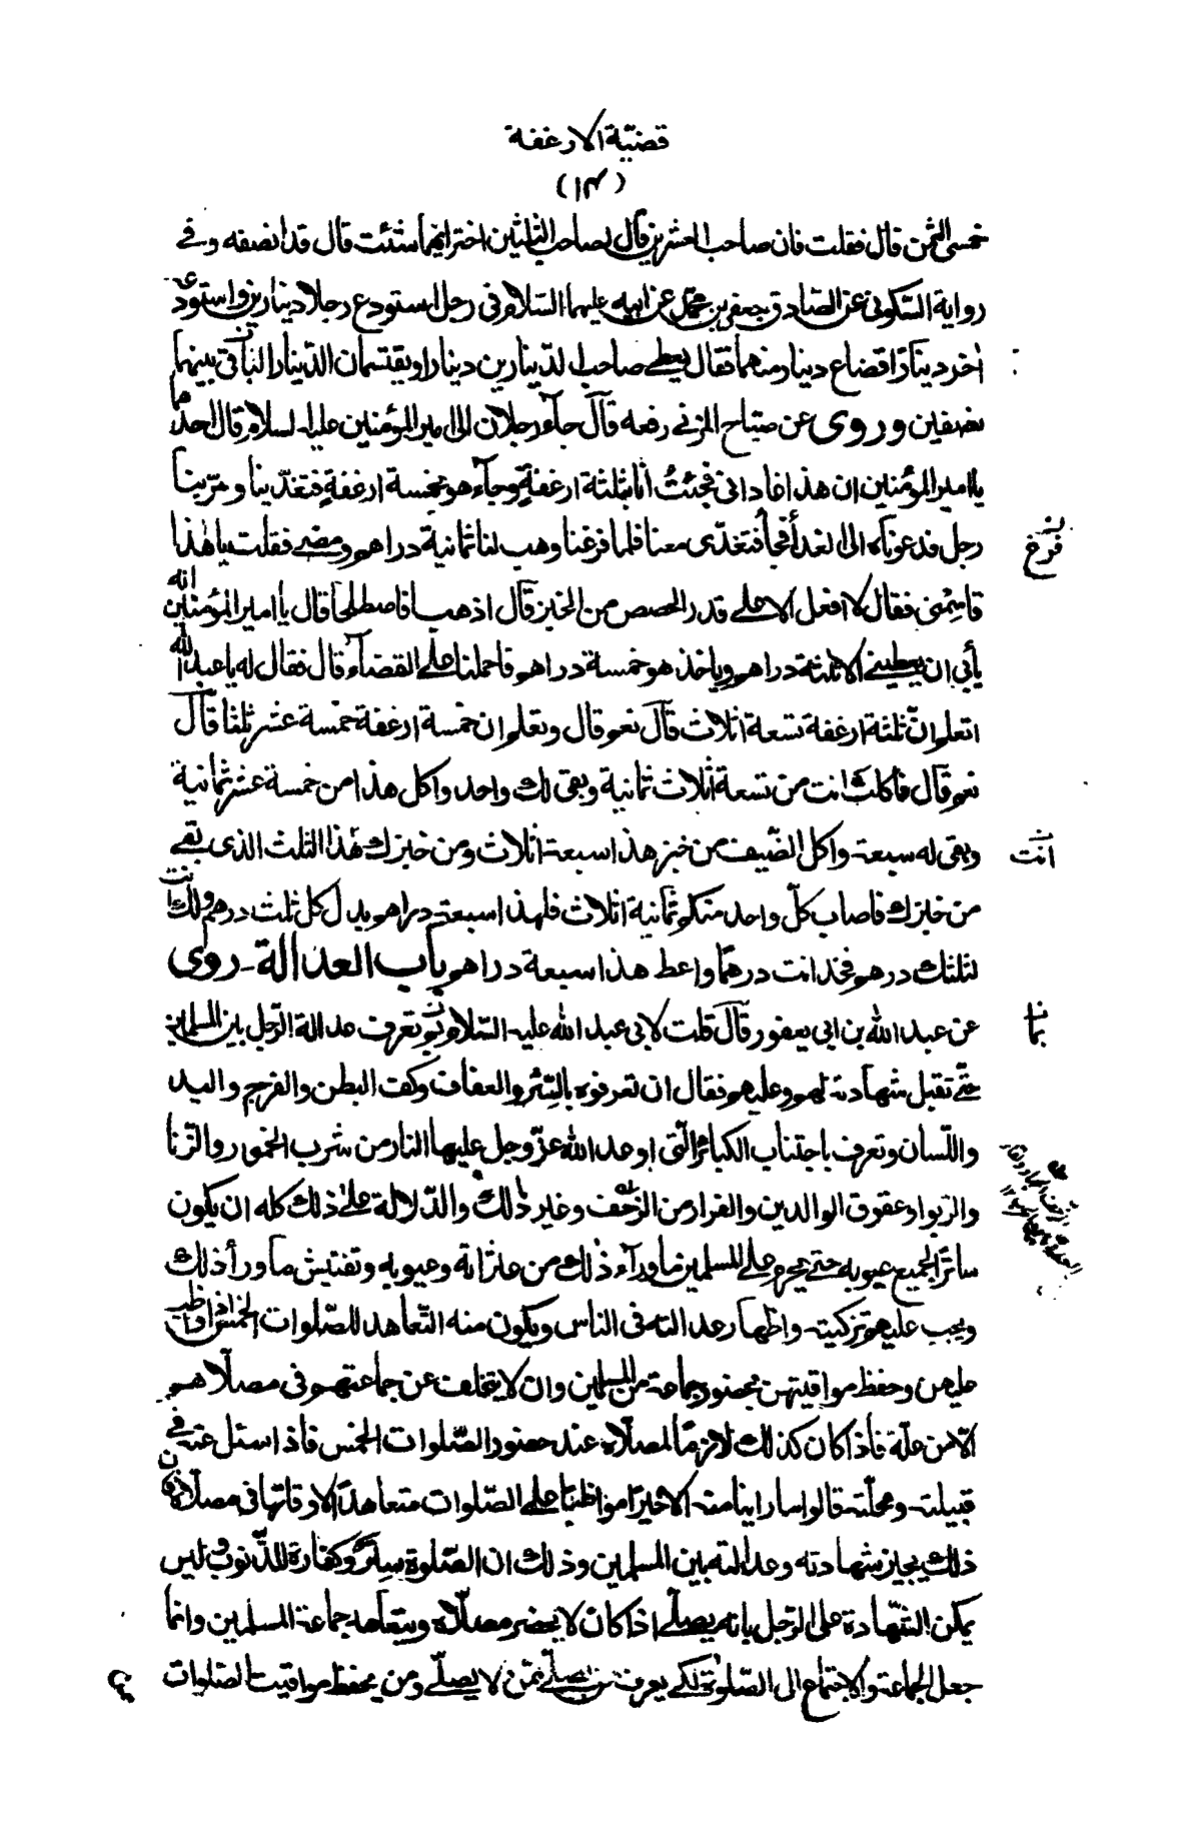 قضيّة الارغفة
(١٣)
خمسى الثمن قال فقلت فان صاحب العشرين قال لصاحب الثلثين اختر ايهما شئت قال قد انصفه وفى
رواية السّكونى عن الصّادق جعفر بن محمّد عن ابيه عليهما السّلام فى رجل استودع رجلا دينارين واستودعه
اخر دينارًا فضاع دينار منهما فقال يعطى صاحب الدّينارين دينارا ويقتسمان الدّينار الباقى بينهما
نصفين وروى عن صباح المزنى رفعه قال جآء رجلان الى امير المؤمنين عليه السلام فقال احدهما
يا امير المؤمنين ان هذا غادانى فجئتُ انا بثلثة ارغفةٍ وجآء هو بخمسة ارغفةٍ فتغدّينا ومرّ بنا
رجل فدعوناه الى الغدآء فجآء فتغدّى معنا فلما فرغنا وهب لنا ثمانية دراهم ومضى فقلت يا هٰذا
فرغ
قاسِمْنى فقال لا افعل الا على قدر الحصص من الخبز قال اذهبا فاصطلحا قال يا امير المؤمنين انه
يأبى ان يعطينى الا ثلثة دراهم وياخذ هو خمسة دراهم فاحملنا على القضآء قال فقال له يا عبد الله
اتعلم انّ ثلثة ارغفة تسعة اثلاث قال نعم قال وتعلم ان خمسة ارغفة خمسة عشر ثلثا قال
نعم قال فاكلت انت من تسعة اثلاث ثمانية وبقى لك واحد واكل هذا من خمسة عشر ثمانية
وبقى له سبعة واكل الضّيف من خبز هذا سبعة اثلاث ومن خبزك هٰذا الثلث الذى بقى
انت
من خبزك فاصاب كلّ واحد منكم ثمانية اثلاث فلهذا سبعة دراهم بدل كل ثلث درهم ولك انت
لثلثك درهم فخذ انت درهمًا واعط هذا سبعة دراهم باب العدالة ـ روى
عن عبد الله بن ابى يعفور قال قلت لابى عبد الله عليه السّلام بم تعرف عدالة الرّجل بين المسلمين
بما
حتّى تقبل شهادته لهم وعليهم فقال ان تعرفوه بالسِّتْر والعفاف وكفّ البطن والفرج واليد
واللّسان وتعرف باجتناب الكبائر الّتى اوعد الله عزّ وجل عليها النار من شرب الخمور والزّنا
والربوا وعقوق الوالدين والفرار من الزّحف وغير ذٰلك والدّلالة على ذٰلك كله ان يكون
ساترًا لجميع عيوبه حتى يحرم على المسلمين ما ورآء ذٰلك من عثراته وعيوبه وتفتيش ما ورآء ذلك
ويجب عليهم تزكيته واظهار عدالته فى الناس ويكون منه التّعاهد للصّلوات الخمس اذا واظب
عليهن وحفظ مواقيتهن بحضور جماعة من المسلمين وان لا يتخلف عن جماعتهم فى مصلّاهم
الّا من علّة فاذا كان كذلك لازمًا لمصلّاه عند حضور الصّلوات الخمس فاذا سئل عنه فى
قبيلته ومحلّته قالوا ما راينا منه الا خيرًا مواظبًا على الصّلوات متعاهدًا لاوقاتها فى مصلّاه فان
ذلك يجيز شهادته وعدالته بين المسلمين وذلك ان الصّلوة سِتْرٌ وكفارة للذّنوب وليس
يمكن الشّهادة على الرّجل بانه يصلّى اذا كان لا يحضر مصلّاه ويتعاهد جماعة المسلمين وانما
جعل الجماعة والاجتماع الى الصّلوة لكى يعرف من يصلّى ممّن لا يصلّى ومن يحفظ مواقيت الصلوات